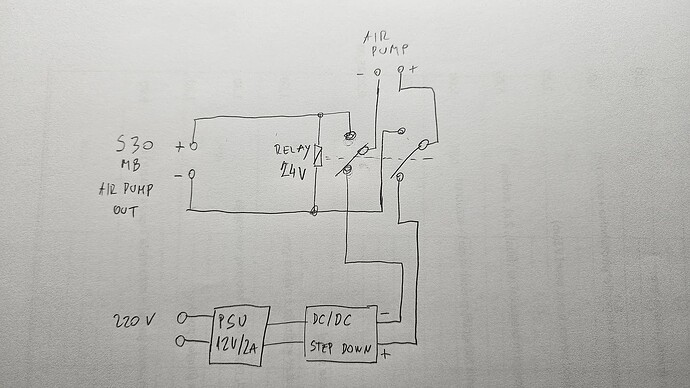 AIR
PUMP
- +
S30
MB
AIR PUMP
OUT
+
-
RELAY
24V
220 V
PSU
12V/2A
DC/DC
STEP DOWN
-
+